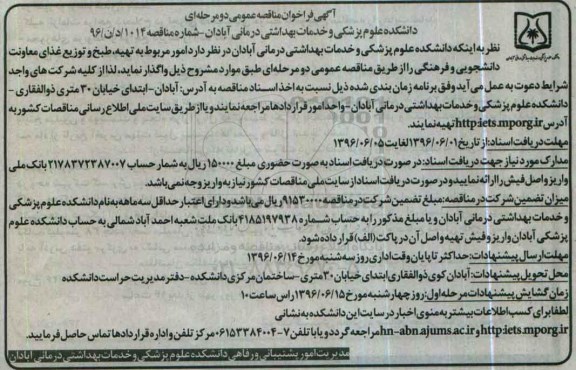 آگهی فراخوان مناقصه عمومی دو مرحله ای
دانشکده علوم پزشکی و خدمات بهداشتی درمانی آبادان - شماره مناقصه ۱۰۱۴/د/ن/۹۶
نظر به اینکه دانشکده علوم پزشکی و خدمات بهداشتی درمانی آبادان در نظر دارد امور مربوط به تهیه، طبخ و توزیع غذای معاونت
دانشجویی و فرهنگی را از طریق مناقصه عمومی دو مرحله ای طبق موارد مشروح ذیل واگذار نماید، لذا از کلیه شرکت های واجد
شرایط دعوت به عمل می آید وفق برنامه زمان بندی شده ذیل نسبت به اخذ اسناد مناقصه به آدرس: آبادان - ابتدای خیابان ۳۰ متری ذوالفقاری -
دانشکده علوم پزشکی و خدمات بهداشتی درمانی آبادان - واحد امور قراردادها مراجعه نمایند و یا از طریق سایت ملی اطلاع رسانی مناقصات کشور به
آدرس http:iets.mporg.ir تهیه نمایند.
مهلت دریافت اسناد: از تاریخ ۱۳۹۶/۰۶/۰۱ لغایت ۱۳۹۶/۰۶/۰۵
مدارک مورد نیاز جهت دریافت اسناد: در صورت دریافت اسناد به صورت حضوری مبلغ ۱۵۰۰۰۰ ریال به شماره حساب ۲۱۷۸۳۷۲۳۸۷۰۰۷ بانک ملی
واریز و اصل فیش را ارائه نمایید و در صورت دریافت اسناد از سایت ملی مناقصات کشور نیاز به واریز وجه نمی باشد.
میزان تضمین شرکت در مناقصه: مبلغ تضمین شرکت در مناقصه ریال می باشد و دارای اعتبار حداقل سه ماهه به نام دانشکده علوم پزشکی
و خدمات بهداشتی درمانی آبادان و یا مبلغ مذکور را به حساب شماره ۴۱۸۵۱۹۷۹۳۸ بانک ملت شعبه احمد آباد شمالی به حساب دانشکده علوم
پزشکی آبادان واریز و فیش تهیه و اصل آن در پاکت (الف) قرار داده شود.
مهلت ارسال پیشنهادات: حداکثر تا پایان وقت اداری روز سه شنبه مورخ ۱۳۹۶/۰۶/۱۴
محل تحویل پیشنهادات: آبادان کوی ذوالفقاری ابتدای خیابان ۳۰ متری - ساختمان مرکزی دانشکده - دفتر مدیریت حراست دانشکده
زمان گشایش پیشنهادات مرحله اول: روز چهارشنبه مورخ ۱۳۹۶/۰۶/۱۵ راس ساعت ۱۰
لطفا برای کسب اطلاعات بیشتر به منوی اخبار در سایت این دانشکده به نشانی
http:iets.mporg.ir و hn-abn.ajums.ac.ir مراجعه گردد و یا با تلفن ۷-۰۶۱۵۳۳۸۴۰۰۴ مرکز تلفن و اداره قراردادها تماس حاصل فرمایید.
مدیریت امور پشتیبانی و رفاهی دانشکده علوم پزشکی و خدمات بهداشتی درمانی آبادان